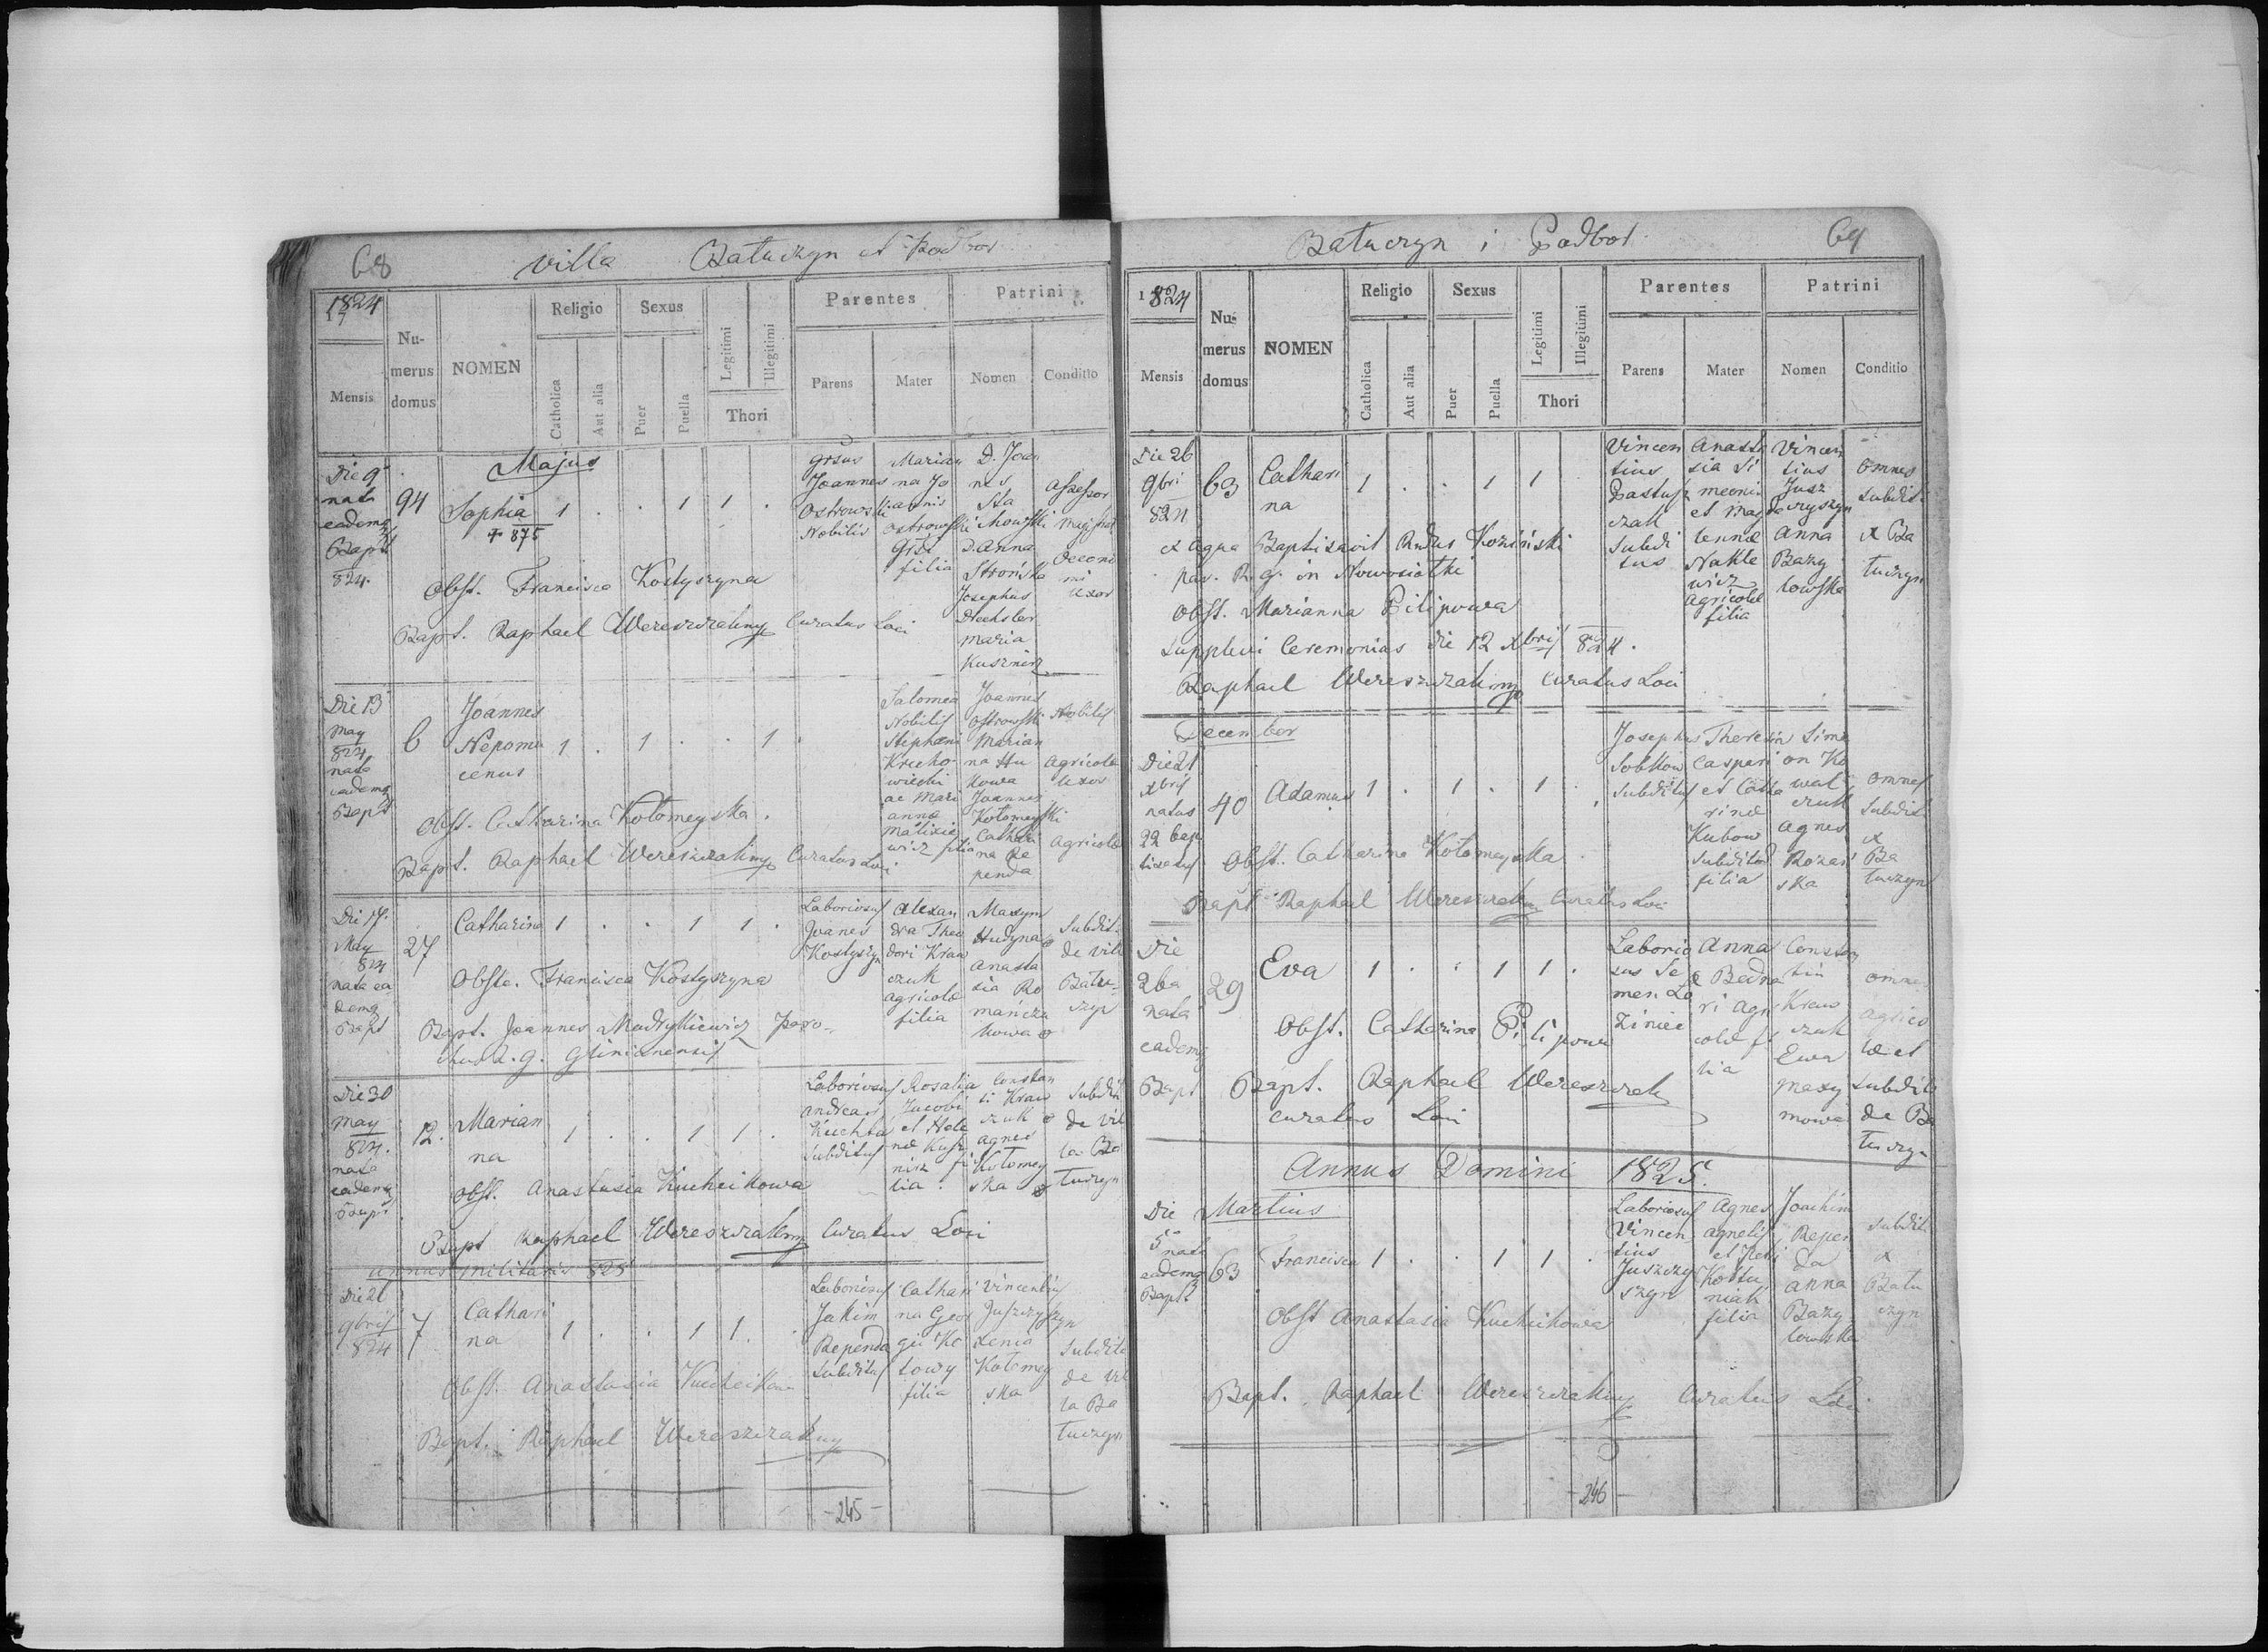 68 villa Batuczyn et Podbor
1824
Mensis
Numerus domus
NOMEN
Religio
Catholica
Aut alia
Sexus
Puer
Puella
Legitimi
Illegitimi
Thori
Parentes
Parens
Mater
Patrini
Nomen
Conditio
Majus
Die 9
nata
eadem
Bapt
824.
94
Sophia
+ 875
1 . . 1 1 .
Joannes
Ostrowski
Nobilis
Marian
na Jo
annis
Ostrowski
filia
D. Joan
nes
Sta
chowski
D. Anna
Strońska
Josephus
Drechsler
Maria
Kusznirz
Assessor
Oeconi
mi
uxor
Obst. Francisca Kostyszyna
Bapt. Raphael Wereszczakiny Curatus Loci
Die 13
May
824
nata
eadem
Bapt
6
Joannes
Nepomu
cenus
1 . 1 . . 1 .
Salomea
Nobilis
Stephani
Krecho-
wiecki
ac Mari
anna
filia
Joannes
Ostrowski
Marian
na
Joannes
Kołomeyski
Catheri
na Re
penda
Nobiles
agricola
uxor
agricola
Obst. Catharina Kołomeyska.
Bapt. Raphael Wereszczakiny Curatus Loci
Die 17.
May
824
nata ea
dem
Bapt
27
Catharina
1 . . 1 1 .
Laboriosus
Joanes
Kostyszyn
Alexan
dra Theo
dori Kraw
czuk
agricola
filia
Maxym
Hudyna
Anasta
sia Ro
mańcza
kowa
Subdit.
de vill
Batu-
czyn
Obste. Francisca Kostyszyna
Bapt. Joannes Mudrykiewicz Paro-
chus R. g. Glinianensis
Die 30
May
824.
nata
eadem
Bapt
12.
Marian
na
1 . . 1 1 .
Laboriosus
Andreas
Kuchta
Subditus
Rosalia
Jacobi
et Hele
na Kusz
nirz fi
lia.
Constan
ti Kraw
czuk
Agnes
Kołomey
ska
Subditi
de vil
la Ba
tuczyn
Obst. Anastasia Kucheikowa
Bapt Raphael Wereszczakiny Curatus Loci
annus militaris 825
Die 21
9bris
824
7
Cathari
na
1 . . 1 1 .
Laboriosus
Jakim
Rependa
Subditus
Cathari
na Geor
gii Ko
towy
filia
Vincentius
Juszczyszyn
Xenia
Kołomey
ska
Subditi
de vil
la Ba
tuczyn
Obst. Anastasia Kucheikowa
Bapt. Raphael Wereszczakiny
-245-
Batuczyn i Podbor 69
1824
Mensis
Numerus domus
NOMEN
Religio
Catholica
Aut alia
Sexus
Puer
Puella
Legitimi
Illegitimi
Thori
Parentes
Parens
Mater
Patrini
Nomen
Conditio
Die 26
9bri
824
63
Cathari
na
1 . . 1 1
Vincen
tius
Pastusz
czak
Subdi
tus
Anasta
sia Si
meonis
et Mag
Nakle
wicz
agricolæ
filia
Vincen
tius
Jusz
czyszyn
Anna
Bazy
lowska
Omnes
Subditi
ex Ba
tuczyn
ex aqua Baptisavit Rndus Koziński
par. R. g. in Nowosiołki
Obst. Marianna Pilipowa
Supplevi Ceremonias Die 12 Xbris 824.
Raphael Wereszczakiny Curatus Loci
December
Die 21
Xbris
natus
22 bap
tisatus
40
Adamus
1 . 1 . 1 .
Josephus
Sobkow
Subditus
Theresia
Caspari
et Catha
rinæ
Kubow
subditor
filia
Sime
on Ko
wal
czuk
Agnes
Rozań
ska
Omnes
Subditi
ex
Ba
tuczyn
Obst. Catharina Kołomeyska.
Bapt. Raphael Wereszczakiny Curatus Loci
Die
26a
nata
eadem
Bapt
29
Eva
1 . . 1 1 .
Laborio
sus Se
men
Anna
Bedna
ri agri
colæ fi
lia
Constan
tin
Kraw
czuk
Ewa
Maxy
mowa
omnes
agrico
læ et
Subditi
de Ba
tuczyn
Obst. Catharina Pilipowa
Bapt. Raphael Wereszczak
Curatus Loci
Annus Domini 1825.
Martius
Die
5a
nata
eadem
Bapt
63
Francisca
1 . . 1 1 .
Laboriosus
Vincen
tius
Juszczy
szyn
Agnes
Kostu
niak
filia
Joachim
Repen
da
Anna
Bazy
lowska
Subditi
ex
Batu
czyn
Obst Anastasia Kucheikowa
Bapt. Raphael Wereszczakiny Curatus Loci
-246-